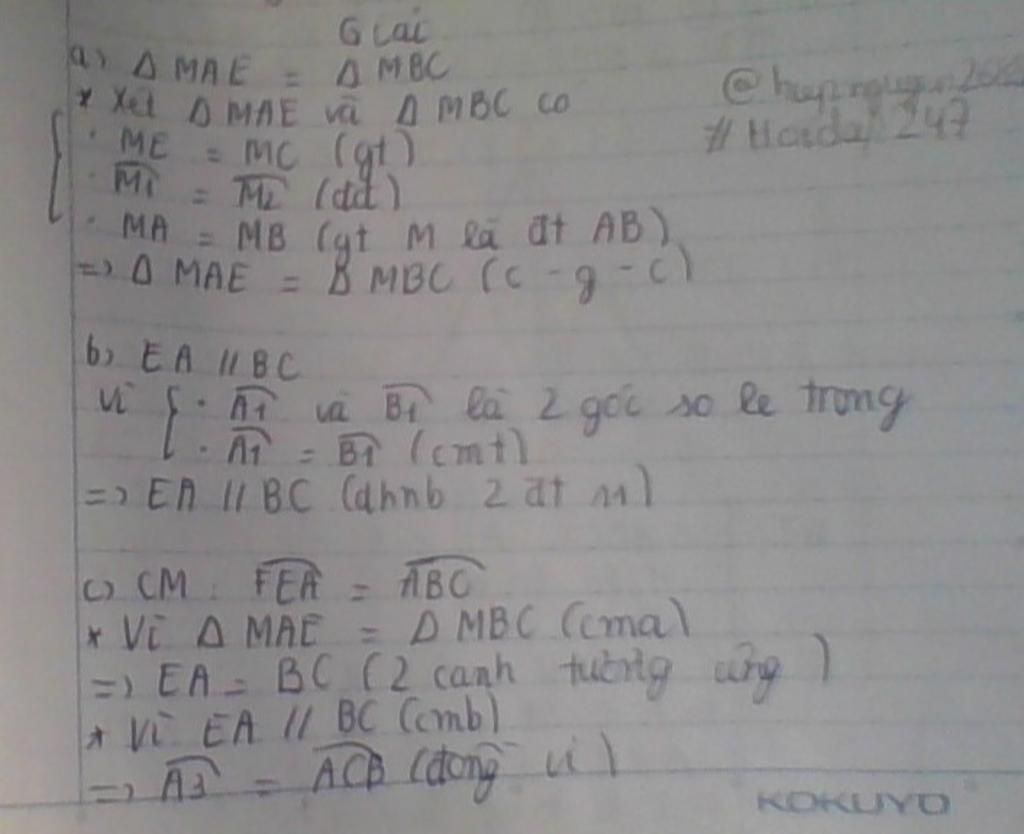 Giải
a) Δ MAE = Δ MBC
* Xét Δ MAE và Δ MBC có
· ME = MC (gt)
· M̂1 = M̂2 (đđ)
· MA = MB (gt M là đt AB)
=> Δ MAE = Δ MBC (c - g - c)
b) EA // BC
Vì { · Â1 và B̂1 là 2 góc so le trong
· Â1 = B̂1 (cmt)
=> EA // BC (dhnb 2 đt //)
c) CM : FEA = ABC
* Vì Δ MAE = Δ MBC (cma)
=> EA = BC (2 cạnh tương ứng)
* Vì EA // BC (cmb)
=> Â3 = ACB (đồng vị)
#Hoidap247
KOKUYO